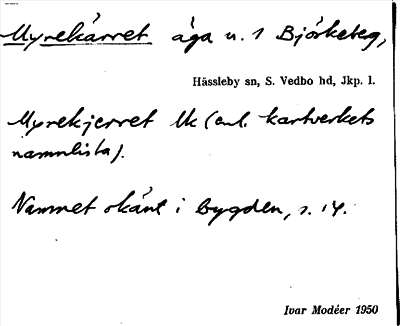 Myrekärret äga u. 1 Björketeg,
Hässleby sn, S. Vedbo hd, Jkp. l.
Myrekjerret Uk (enl. kartverkets
namnlista).
Namnet okänt i bygden, s. 14.
Ivar Modéer 1950